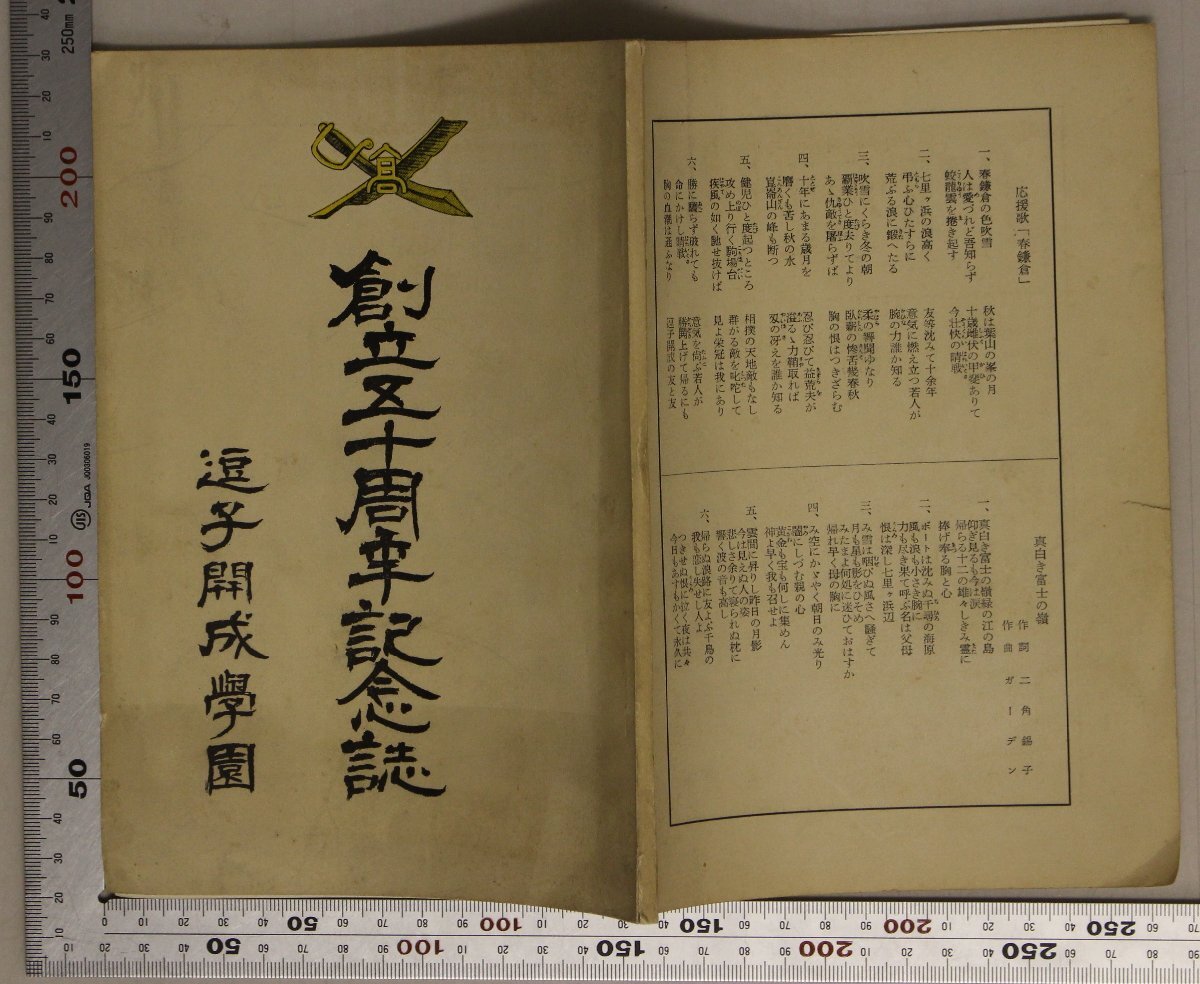 高
創立五十周年記念誌
逗子開成學園
応援歌「春鎌倉」
一、春鎌倉の色吹雪
人は愛づれど吾知らず
蛟龍雲を捲き起す
秋は葉山の峯の月
十歳雌伏の甲斐ありて
今壮快の晴戦
二、七里ヶ浜の浪高く
弔ふ心ひたすらに
荒ぶる浪に鍛へたる
友等沈みて十余年
意気に燃え立つ若人が
腕の力誰か知る
三、吹雪にくらき冬の朝
覇業ひと度去りてより
あゝ仇敵を屠らずば
柔の響聞ゆなり
臥薪の惨苦幾春秋
胸の恨はつきざらむ
四、十年にあまる歳月を
磨くも苦し秋の水
崑崙山の峰も断つ
忍び忍びて益荒夫が
溢るゝ力鞘取れば
刄の冴えを誰か知る
五、健児ひと度起つところ
攻め上り行く駒場台
疾風の如く馳せ抜けば
相撲の天地敵もなし
群がる敵を叱咤して
見よ栄冠は我にあり
六、勝に驕らず敗れても
命にかけし晴戦
胸の血潮は通ふなり
意気を尚ぶ若人が
凱歌上げて帰るにも
逗子開成の友と友
真白き富士の嶺
作詞 三角錫子
作曲 ガーデン
一、真白き富士の嶺緑の江の島
仰ぎ見るも今は涙
帰らる十二の雄々しきみ霊に
捧げ奉る胸と心
二、ボートは沈みぬ千尋の海原
風も浪も小さき腕に
力も尽き果て呼ぶ名は父母
恨は深し七里ヶ浜辺
三、み雪は咽びぬ風さへ騒ぎて
月も星も影をひそめ
みたまよ何処に迷ひておはすか
帰れ早く母の胸に
四、み空にかゞやく朝日のみ光り
闇にしづむ親の心
黄金も宝も何しに集めん
神よ早く我も召せよ
五、雲間に昇りし昨日の月影
今は見えぬ人の姿
悲しさ余りて寝られぬ枕に
響く波の音も高し
六、帰らぬ浪路に友よぶ千鳥の
我も恋し失せし人よ
つきせぬ恨に泣く夜は共々
今日もあすもかくて永久に